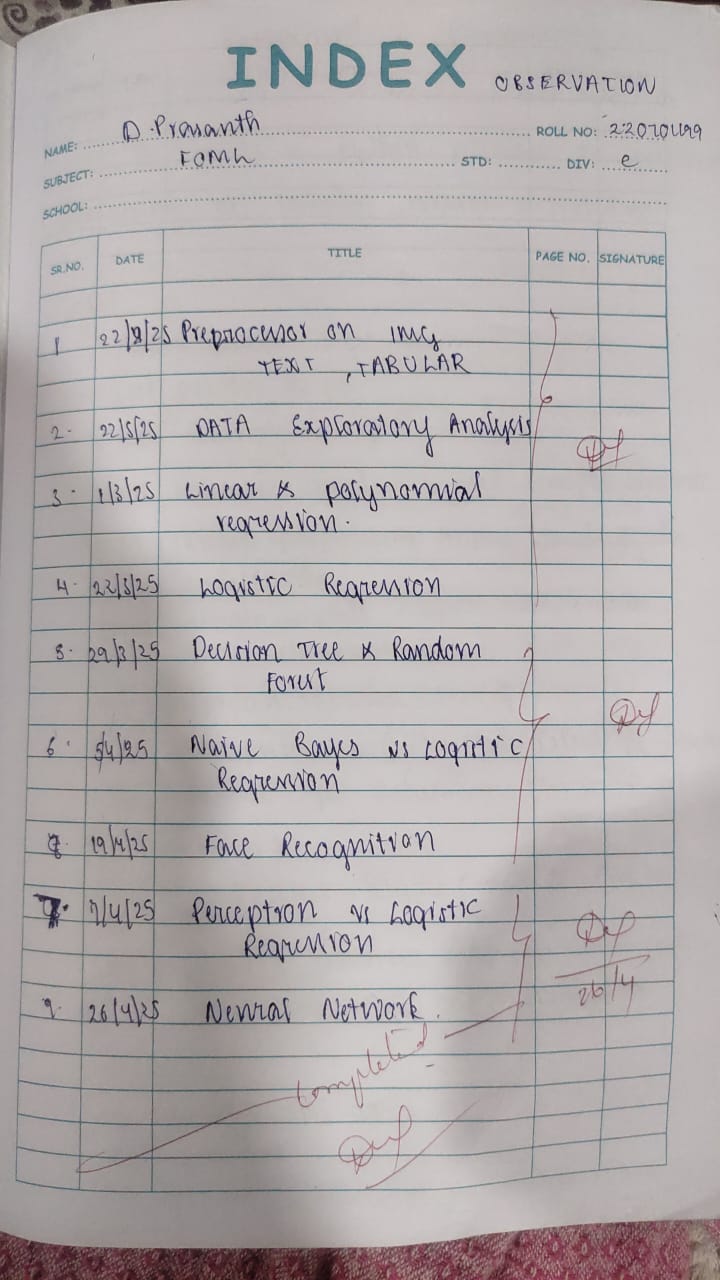 INDEX OBSERVATION
NAME: D. Prasanth ROLL NO: 220701199
SUBJECT: FOML STD: DIV: e
SCHOOL:
SR.NO. DATE TITLE PAGE NO. SIGNATURE
1 22/2/25 Preprocessor on IMG
TEXT, TABULAR
2. 22/3/25 DATA Exploratory Analysis
3. 1/3/25 Linear & polynomial
regression.
4. 22/3/25 Logistic Regression
5. 29/3/25 Decision Tree & Random
Forest
6. 5/4/25 Naive Bayes vs Logistic
Regression
19/4/25 Face Recognition
7/4/25 Perceptron vs Logistic
Regression
26/4
9. 26/4/25 Neural Network.
Completed